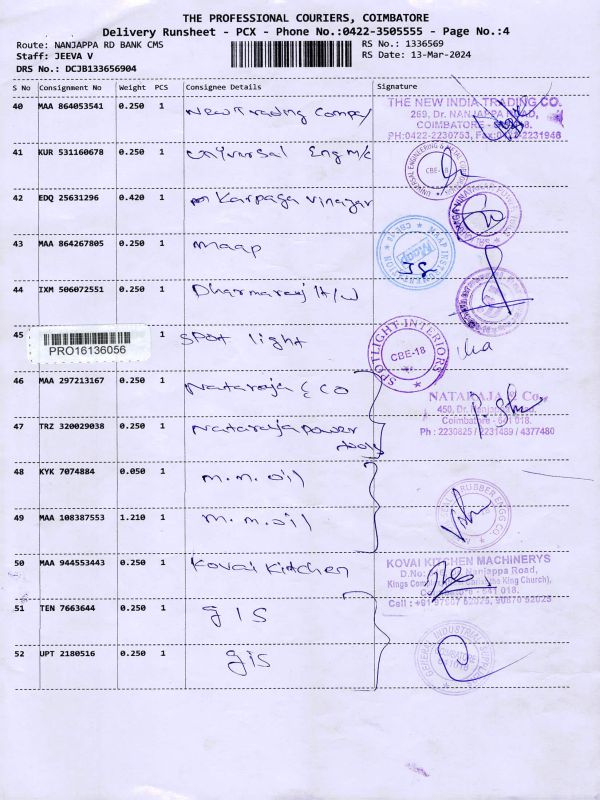 THE PROFESSIONAL COURIERS, COIMBATORE
Delivery Runsheet - PCX - Phone No.:0422-3505555 - Page No.:4
Route: NANJAPPA RD BANK CMS RS No.: 1336569
Staff: JEEVA V RS Date: 13-Mar-2024
DRS No.: DCJB133656904
S No Consignment No Weight PCS Consignee Details Signature
40 MAA 864053541 0.250 1 New Trading Compay
THE NEW INDIA TRADING CO.
269, Dr. NANJAPPA ROAD,
COIMBATORE - 018.
PH:0422-2230753, Fax:0422-2231948
41 KUR 531160678 0.250 1 Universal Eng m/c
UNIVERSAL ENGINEERING &
CBE-18
42 EDQ 25631296 0.420 1 m Karpaga vinayar
43 MAA 864267805 0.250 1 maap
MAAP
CBE-18
44 IXM 506072551 0.250 1 Dharmaraj H/w
45 PRO16136056 1 Spot light
SPOTLIGHT INTERIORS
CBE-18
46 MAA 297213167 0.250 1 Nataraja & co
NATARAJA & Co.
450, Dr. Nanjappa Road,
Coimbatore - 641 018.
Ph : 2230825 / 2231489 / 4377480
47 TRZ 320029038 0.250 1 Nataraja power
tools
48 KYK 7074884 0.050 1 m.m.oil
49 MAA 108387553 1.210 1 m.m.oil
RUBBER ENGG CO
50 MAA 944553443 0.250 1 Kovai Kitchen
KOVAI KITCHEN MACHINERYS
D.No: Nanjappa Road,
Kings Complex, the King Church),
641 018.
51 TEN 7663644 0.250 1 GIS
52 UPT 2180516 0.250 1 gis
INDUSTRIAL